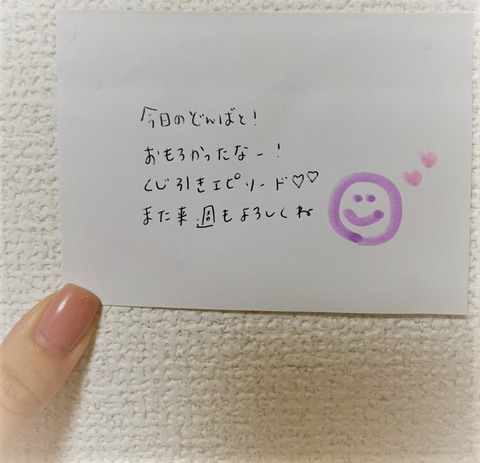 今日のどんばと!
おもろかったなー!
くじ引きエピソード♡♡
また来週もよろしくね